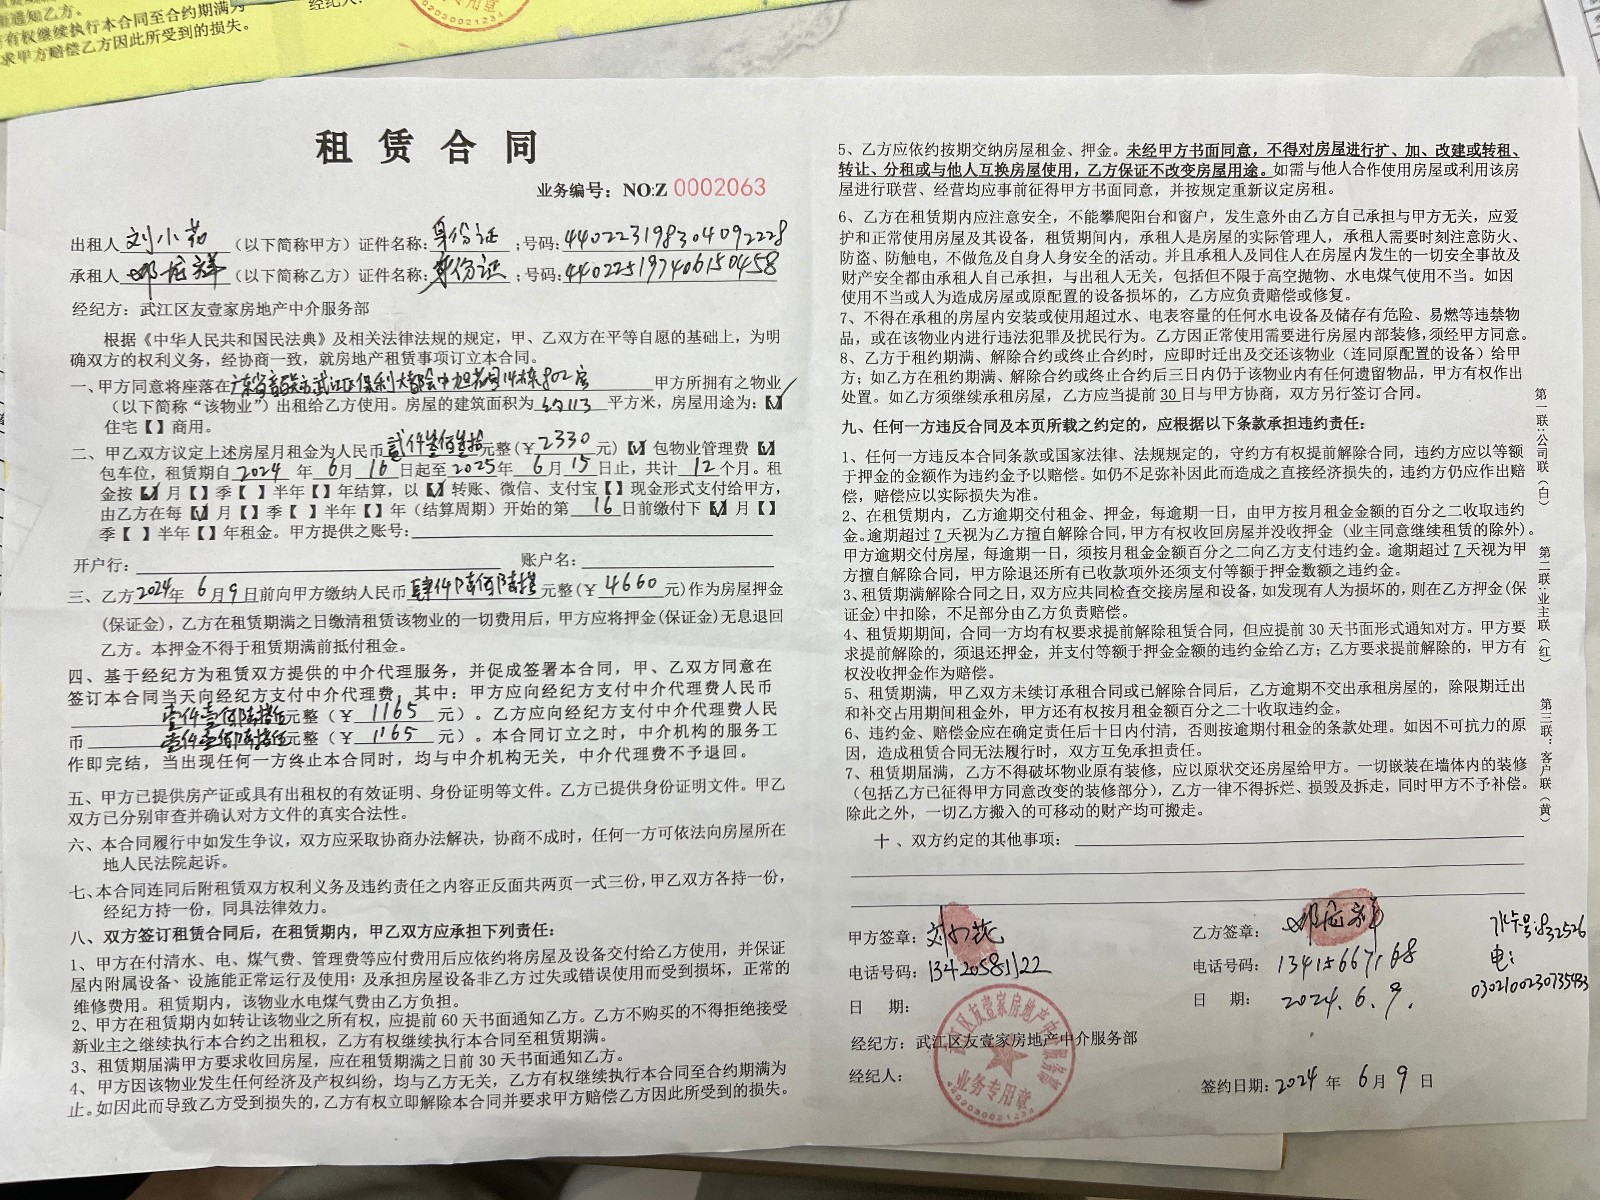 面通知乙方。
方有权继续执行本合同至合约期满为
求甲方赔偿乙方因此所受到的损失。
经纪人:
02030021234
租 赁 合 同
业务编号: NO:Z 0002063
出租人 刘小花 (以下简称甲方) 证件名称: 身份证 ;号码: 440223198304092228
承租人 邓应祥 (以下简称乙方) 证件名称: 身份证 ;号码: 440225197406150458
经纪方: 武江区友壹家房地产中介服务部
根据《中华人民共和国民法典》及相关法律法规的规定，甲、乙双方在平等自愿的基础上，为明
确双方的权利义务，经协商一致，就房地产租赁事项订立本合同。
一、甲方同意将座落在 广东省韶关市武江区保利大都会中旭花园14栋802房 甲方所拥有之物业
(以下简称“该物业”) 出租给乙方使用。房屋的建筑面积为 约113 平方米，房屋用途为:【✓】
住宅【 】商用。
二、甲乙双方议定上述房屋月租金为人民币 贰仟叁佰叁拾 元整 (￥ 2330 元) 【✓】包物业管理费【✓】
包车位，租赁期自 2024 年 6 月 16 日起至 2025 年 6 月 15 日止，共计 12 个月。租
金按【✓】月【 】季【 】半年【 】年结算，以【✓】转账、微信、支付宝【 】现金形式支付给甲方，
由乙方在每【✓】月【 】季【 】半年【 】年 (结算周期) 开始的第 16 日前缴付下【✓】月【 】
季【 】半年【 】年租金。甲方提供之账号:
开户行: 账户名:
三、乙方 2024年 6月9日前向甲方缴纳人民币 肆仟陆佰陆拾 元整(￥ 4660 元)作为房屋押金
(保证金)，乙方在租赁期满之日缴清租赁该物业的一切费用后，甲方应将押金(保证金)无息退回
乙方。本押金不得于租赁期满前抵付租金。
四、基于经纪方为租赁双方提供的中介代理服务，并促成签署本合同，甲、乙双方同意在
签订本合同当天向经纪方支付中介代理费，其中: 甲方应向经纪方支付中介代理费人民币
壹仟壹佰陆拾伍元整 (￥ 1165 元) 。乙方应向经纪方支付中介代理费人民
币 壹仟壹佰陆拾伍元整 (￥ 1165 元) 。本合同订立之时，中介机构的服务工
作即完结，当出现任何一方终止本合同时，均与中介机构无关，中介代理费不予退回。
五、甲方已提供房产证或具有出租权的有效证明、身份证明等文件。乙方已提供身份证明文件。甲乙
双方已分别审查并确认对方文件的真实合法性。
六、本合同履行中如发生争议，双方应采取协商办法解决，协商不成时，任何一方可依法向房屋所在
地人民法院起诉。
七、本合同连同后附租赁双方权利义务及违约责任之内容正反面共两页一式三份，甲乙双方各持一份，
经纪方持一份，同具法律效力。
八、双方签订租赁合同后，在租赁期内，甲乙双方应承担下列责任:
1、甲方在付清水、电、煤气费、管理费等应付费用后应依约将房屋及设备交付给乙方使用，并保证
屋内附属设备、设施能正常运行及使用; 及承担房屋设备非乙方过失或错误使用而受到损坏，正常的
维修费用。租赁期内，该物业水电煤气费由乙方负担。
2、甲方在租赁期内如转让该物业之所有权，应提前 60 天书面通知乙方。乙方不购买的不得拒绝接受
新业主之继续执行本合约之出租权，乙方有权继续执行本合同至租赁期满。
3、租赁期届满甲方要求收回房屋，应在租赁期满之日前 30 天书面通知乙方。
4、甲方因该物业发生任何经济及产权纠纷，均与乙方无关，乙方有权继续执行本合同至合约期满为
止。如因此而导致乙方受到损失的，乙方有权立即解除本合同并要求甲方赔偿乙方因此所受到的损失。
5、乙方应依约按期交纳房屋租金、押金。未经甲方书面同意，不得对房屋进行扩、加、改建或转租、
转让、分租或与他人互换房屋使用，乙方保证不改变房屋用途。如需与他人合作使用房屋或利用该房
屋进行联营、经营均应事前征得甲方书面同意，并按规定重新议定房租。
6、乙方在租赁期内应注意安全，不能攀爬阳台和窗户，发生意外由乙方自己承担与甲方无关，应爱
护和正常使用房屋及其设备，租赁期间内，承租人是房屋的实际管理人，承租人需要时刻注意防火、
防盗、防触电，不做危及自身人身安全的活动。并且承租人及同住人在房屋内发生的一切安全事故及
财产安全都由承租人自己承担，与出租人无关，包括但不限于高空抛物、水电煤气使用不当。如因
使用不当或人为造成房屋或原配置的设备损坏的，乙方应负责赔偿或修复。
7、不得在承租的房屋内安装或使用超过水、电表容量的任何水电设备及储存有危险、易燃等违禁物
品，或在该物业内进行违法犯罪及扰民行为。乙方因正常使用需要进行房屋内部装修，须经甲方同意。
8、乙方于租约期满、解除合约或终止合约时，应即时迁出及交还该物业（连同原配置的设备）给甲
方; 如乙方在租约期满、解除合约或终止合约后三日内仍于该物业内有任何遗留物品，甲方有权作出
处置。如乙方须继续承租房屋，乙方应当提前 30 日与甲方协商，双方另行签订合同。
九、任何一方违反合同及本页所载之约定的，应根据以下条款承担违约责任:
1、任何一方违反本合同条款或国家法律、法规规定的，守约方有权提前解除合同，违约方应以等额
于押金的金额作为违约金予以赔偿。如仍不足弥补因此而造成之直接经济损失的，违约方仍应作出赔
偿，赔偿应以实际损失为准。
2、在租赁期内，乙方逾期交付租金、押金，每逾期一日，由甲方按月租金金额的百分之二收取违约
金。逾期超过 7 天视为乙方擅自解除合同，甲方有权收回房屋并没收押金 (业主同意继续租赁的除外)。
甲方逾期交付房屋，每逾期一日，须按月租金金额百分之二向乙方支付违约金。逾期超过 7 天视为甲
方擅自解除合同，甲方除退还所有已收款项外还须支付等额于押金数额之违约金。
3、租赁期满解除合同之日，双方应共同检查交接房屋和设备，如发现有人为损坏的，则在乙方押金(保
证金)中扣除，不足部分由乙方负责赔偿。
4、租赁期期间，合同一方均有权要求提前解除租赁合同，但应提前 30 天书面形式通知对方。甲方要
求提前解除的，须退还押金，并支付等额于押金金额的违约金给乙方; 乙方要求提前解除的，甲方有
权没收押金作为赔偿。
5、租赁期满，甲乙双方未续订承租合同或已解除合同后，乙方逾期不交出承租房屋的，除限期迁出
和补交占用期间租金外，甲方还有权按月租金额百分之二十收取违约金。
6、违约金、赔偿金应在确定责任后十日内付清，否则按逾期付租金的条款处理。如因不可抗力的原
因，造成租赁合同无法履行时，双方互免承担责任。
7、租赁期届满，乙方不得破坏物业原有装修，应以原状交还房屋给甲方。一切嵌装在墙体内的装修
（包括乙方已征得甲方同意改变的装修部分），乙方一律不得拆烂、损毁及拆走，同时甲方不予补偿。
除此之外，一切乙方搬入的可移动的财产均可搬走。
十 、双方约定的其他事项:
第一联:公司联（白）
第二联:业主联（红）
第三联:客户联（黄）
甲方签章: 刘小花
电话号码: 13420581122
日 期:
乙方签章: 邓应祥
电话号码: 13415667168
日 期: 2024.6.9.
水卡号:832526
电:
0302100230735433
经纪方: 武江区友壹家房地产中介服务部
经纪人:
武江区友壹家房地产中介服务部
业务专用章
02030021234
签约日期: 2024 年 6 月 9 日